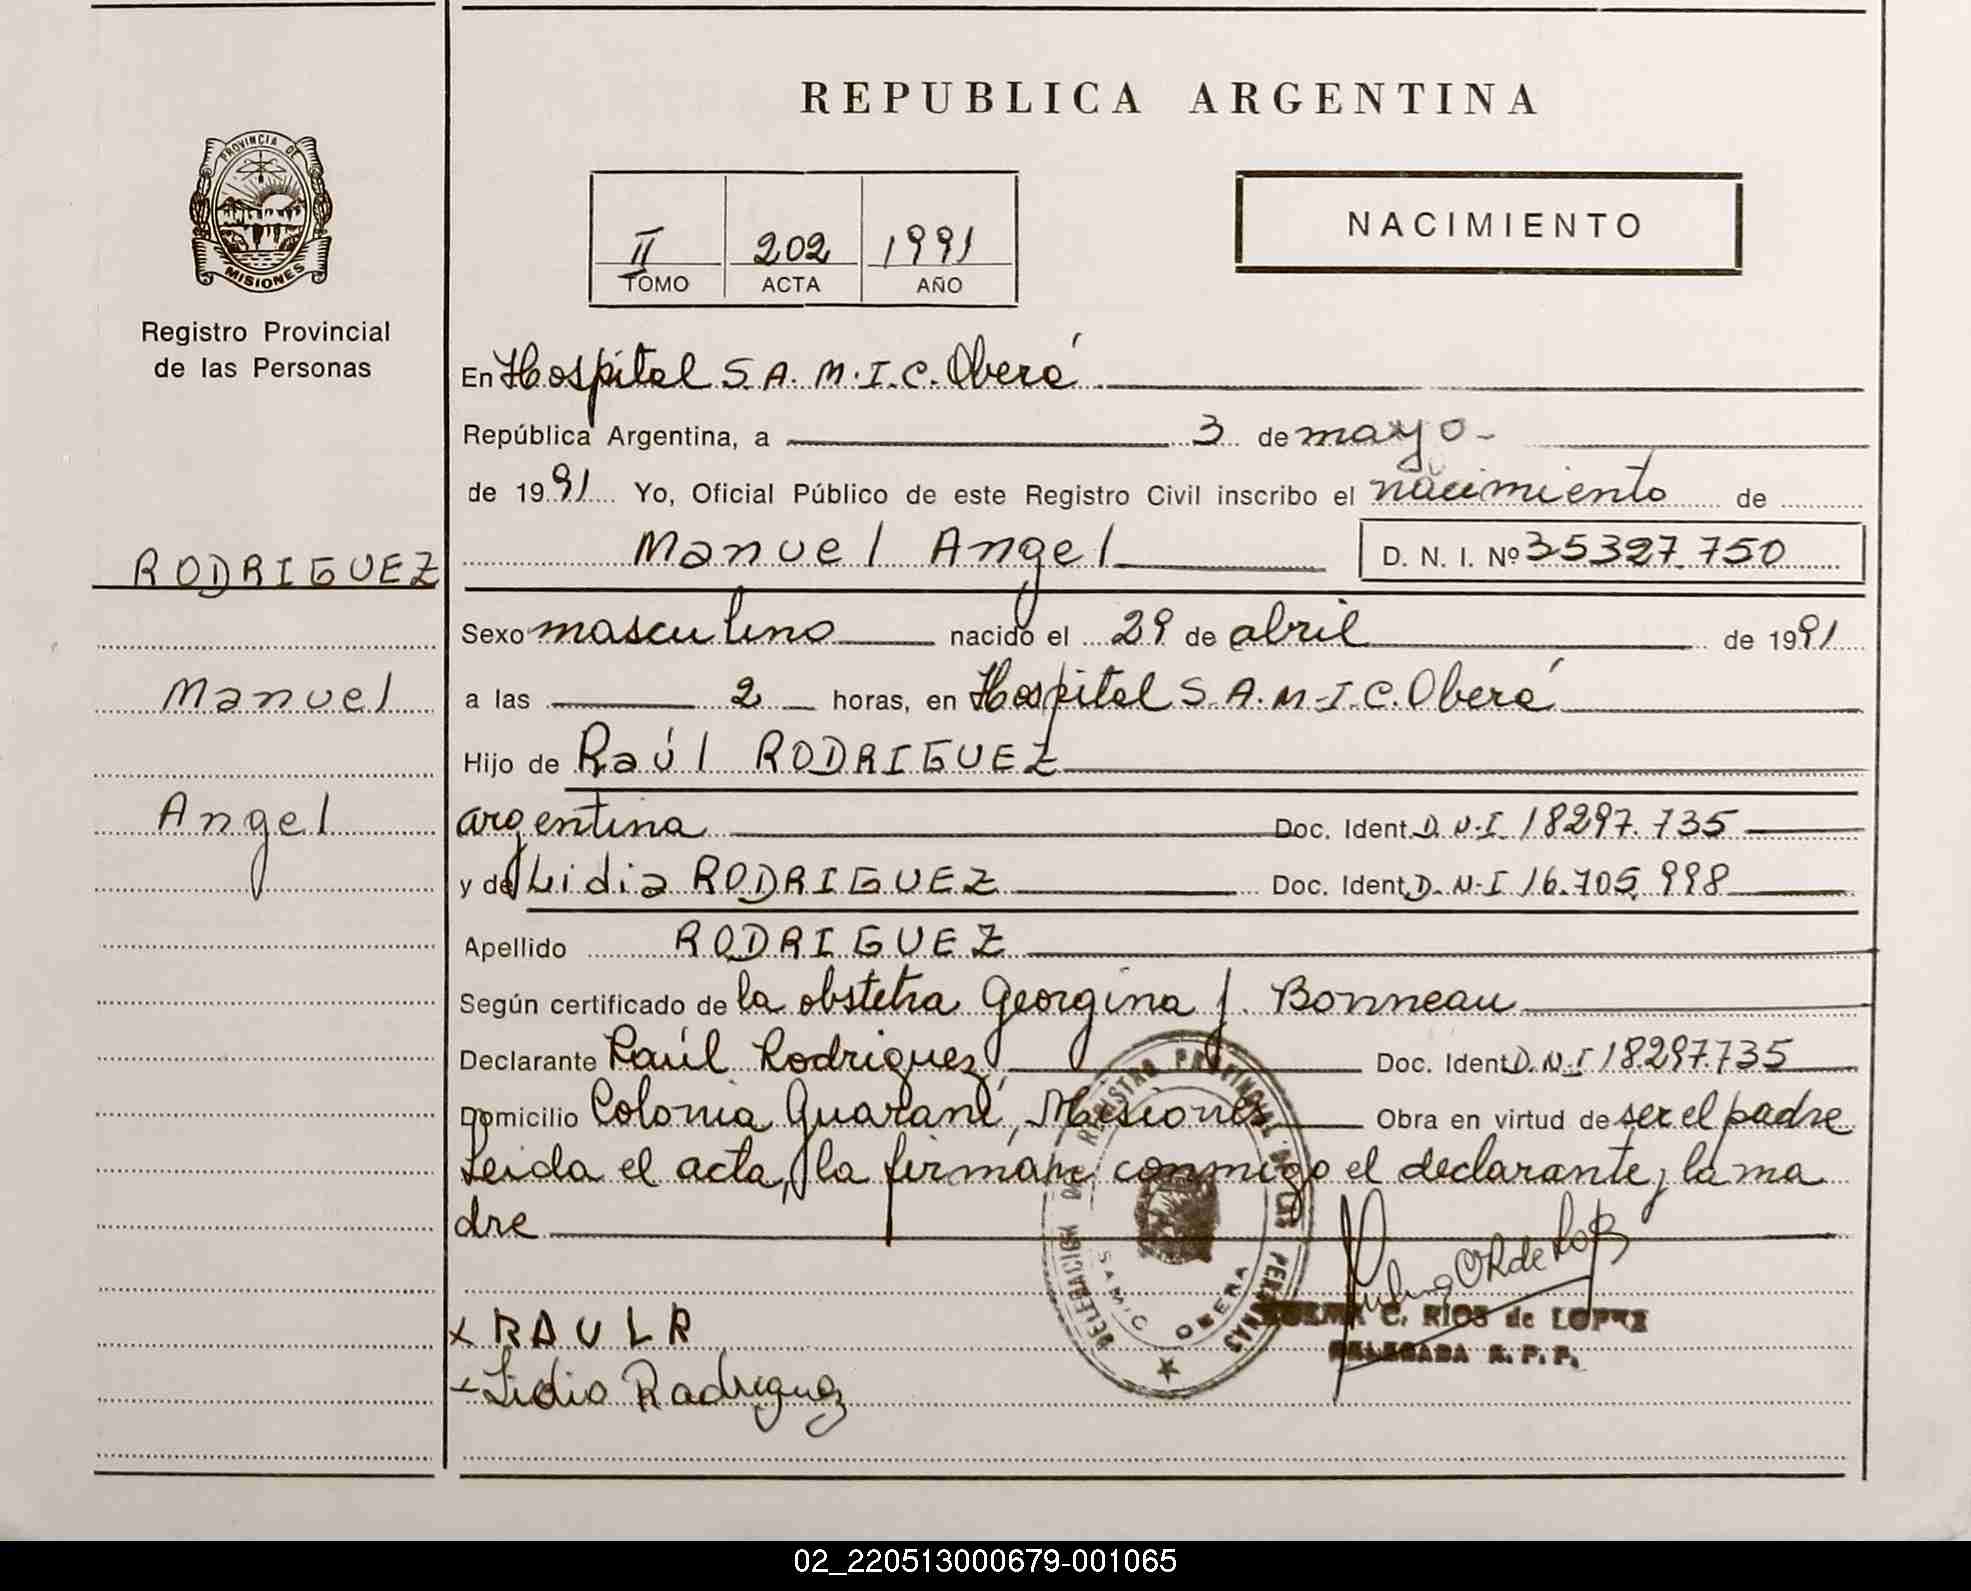 REPUBLICA ARGENTINA
PROVINCIA DE
MISIONES
Registro Provincial
de las Personas
II 202 1991
TOMO ACTA AÑO
NACIMIENTO
En Hospital S.A.M.I.C. Oberá
República Argentina, a 3 de mayo
de 1991 Yo, Oficial Público de este Registro Civil inscribo el nacimiento de
Manuel Angel D. N. I. Nº 35327.750
RODRIGUEZ
Manuel
Angel
Sexo masculino nacido el 29 de abril de 1991
a las 2 horas, en Hospital S.A.M.I.C. Oberá
Hijo de Raúl RODRIGUEZ
argentina Doc. Ident. D.N.I 18297.735
y de Lidia RODRIGUEZ Doc. Ident. D.N.I 16.705.998
Apellido RODRIGUEZ
Según certificado de la obstetra Georgina J. Bonneau
Declarante Raúl Rodriguez Doc. Ident. D.N.I 18.297.735
Domicilio Colonia Guaraní, Misiones Obra en virtud de ser el padre
Leida el acta, la firman conmigo el declarante y la ma
dre
REGISTRO PROVINCIAL DE LAS PERSONAS
DELEGACION
SAMIC OBERA
C. RIOS de LOPEZ
DELEGADA R. P. P.
x RAUL R
x Lidia Rodriguez
02_220513000679-001065